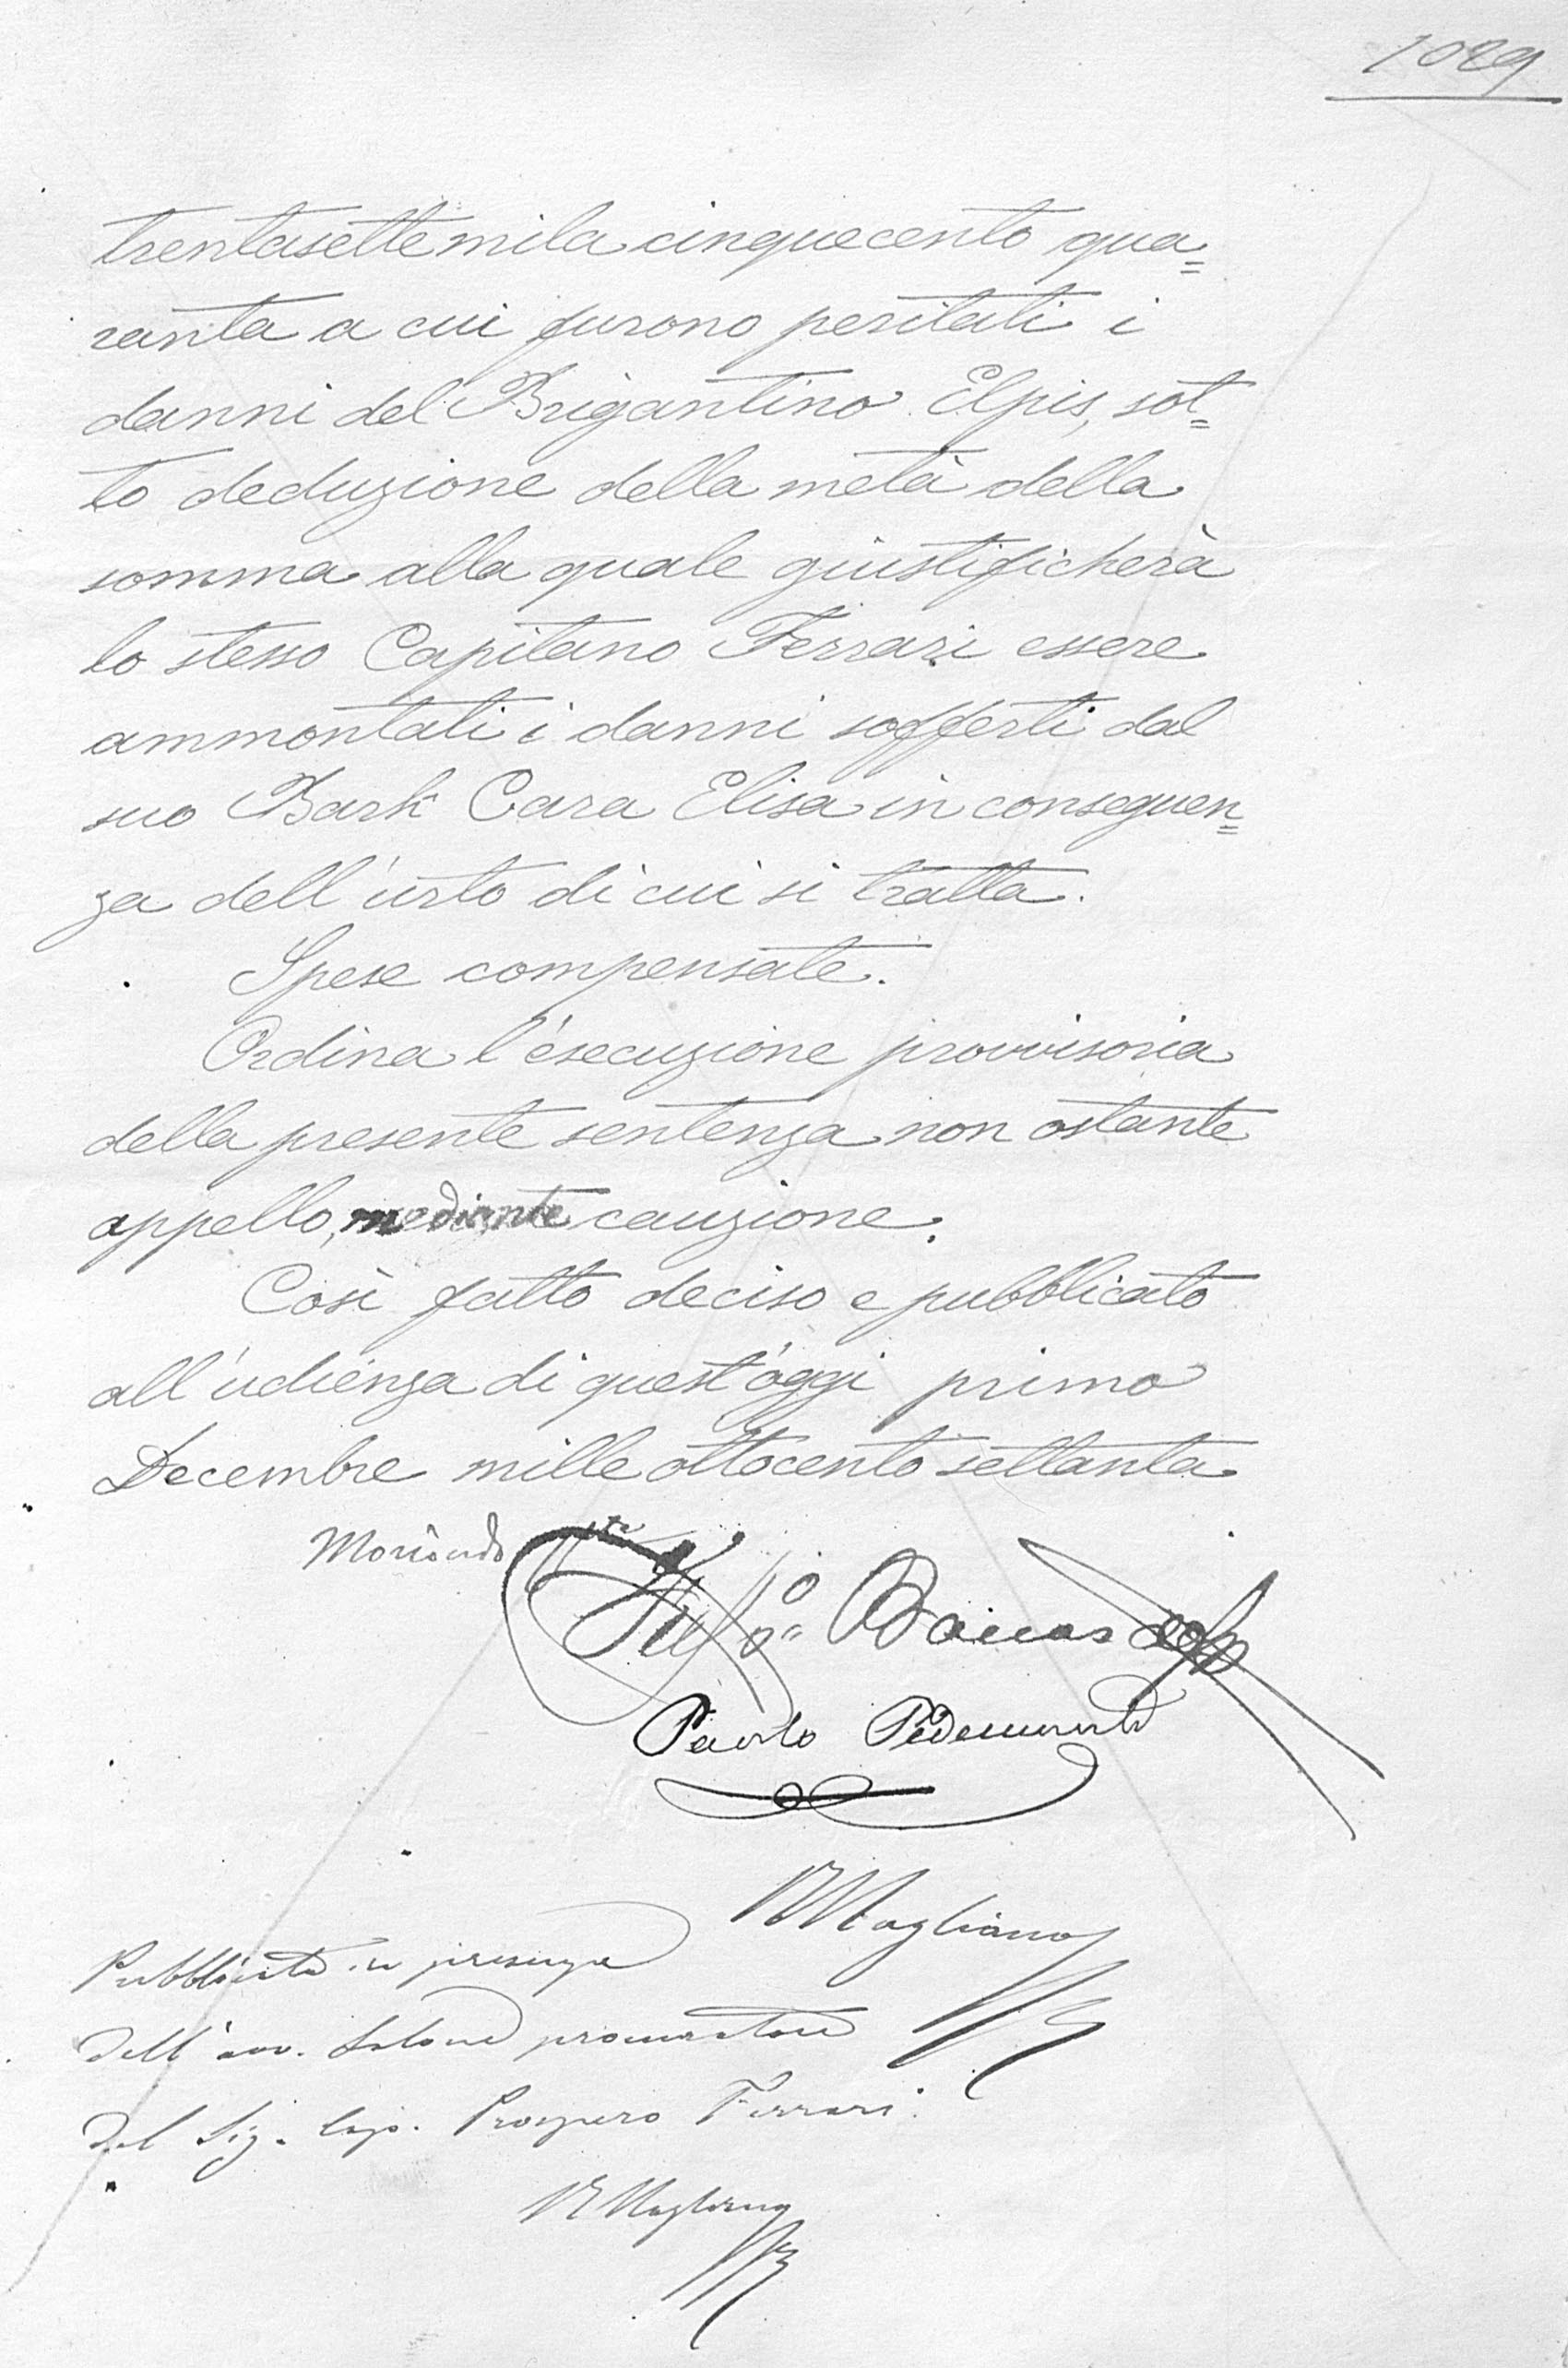 1029
trentasettemila cinquecento qua=
ranta a cui furono peritati i
danni del Brigantino Elpis, sot=
to deduzione della metà della
somma alla quale giustificherà
lo stesso Capitano Ferrari essere
ammontati i danni sofferti dal
suo Bark Cara Elisa in conseguen=
za dell'urto di cui si tratta.
Spese compensate.
Ordina l'esecuzione provvisoria
della presente sentenza non ostante
appello, mediante cauzione.
Così fatto deciso e pubblicato
all'udienza di quest'oggi primo
Decembre mille ottocento settanta
Moriondo
Paolo Pedemonte
Magliano
Pubblicata in presenza
dell'avv. procuratore
del Sig. Cap. Prospero Ferrari.
Magliano